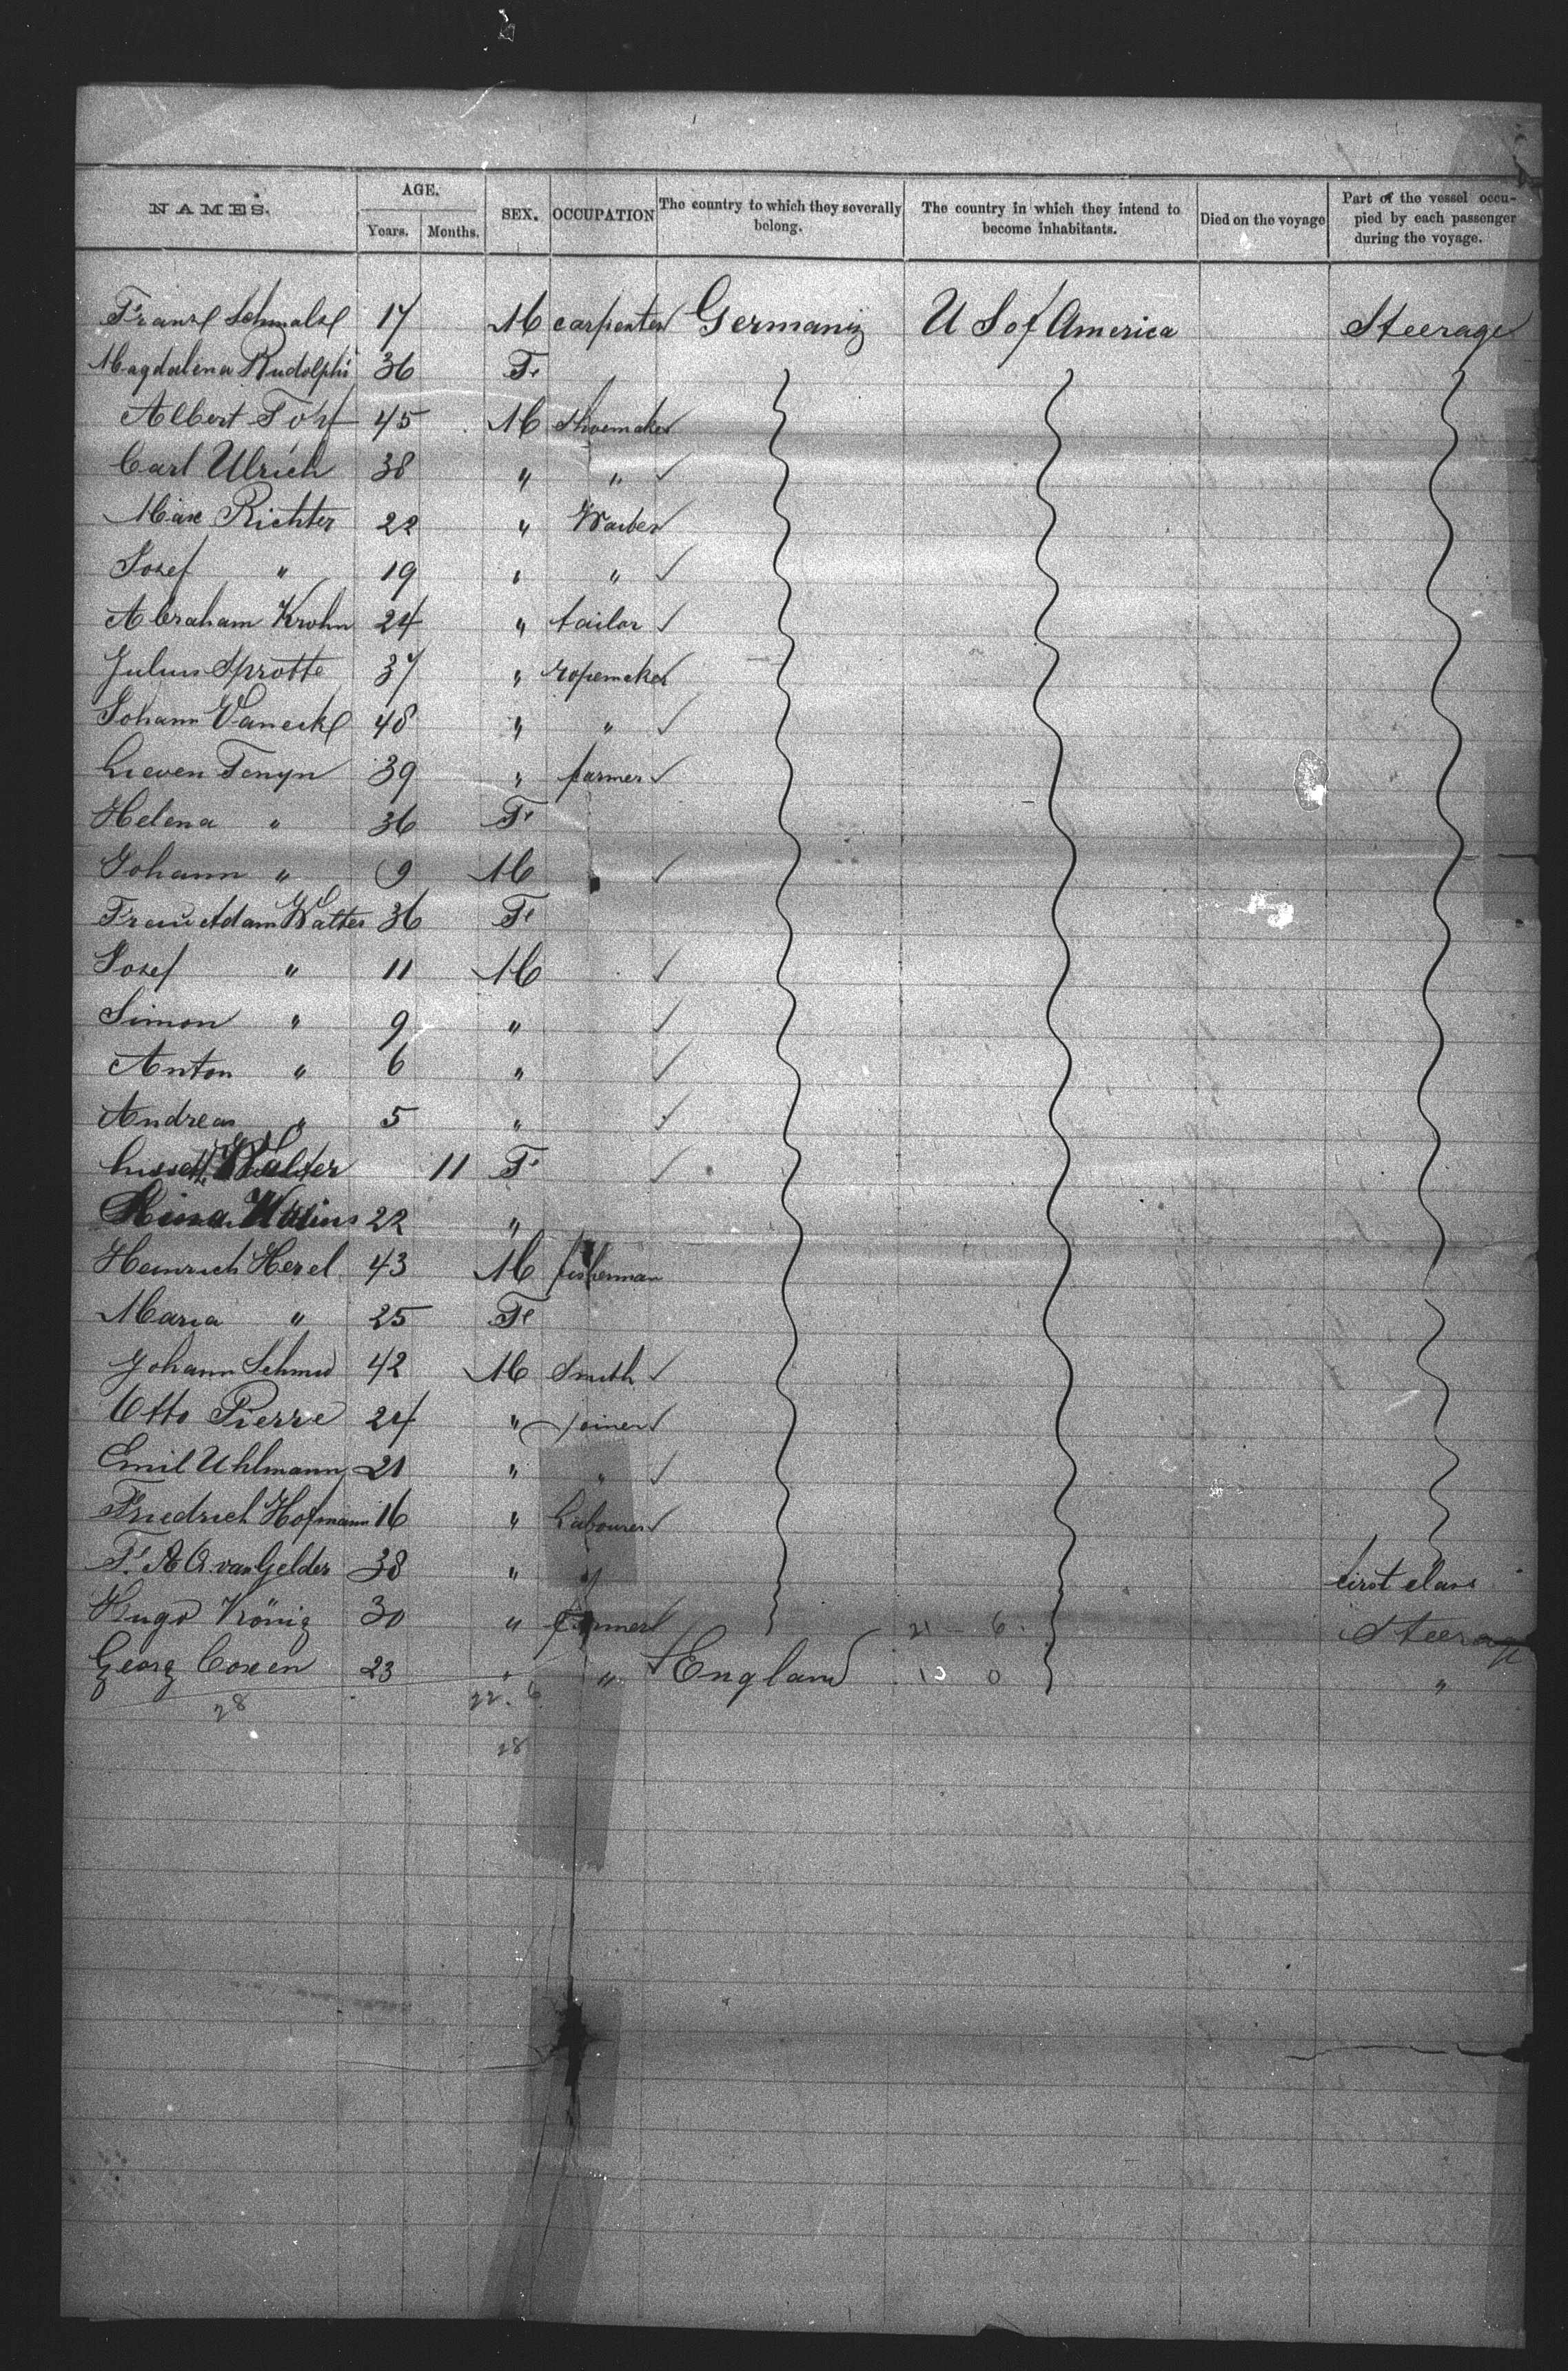 NAMES. AGE. SEX. OCCUPATION The country to which they severally belong. The country in which they intend to become inhabitants. Died on the voyage Part of the vessel occupied by each passenger during the voyage.
Years. Months.
Franz Schmalz 17 M carpenter Germany U S of America Steerage
Magdalena Rudolphi 36 Fe
Albert 45 M Shoemaker
Carl Ulrich 38 " " ✓
Max Richter 22 "
Josef " 19 " " ✓
Abraham Krohn 24 " tailor ✓
Julius Sprotte 37 " ropemaker
Johann 48 " " ✓
Lieven Tenyn 39 " farmer ✓
Helena " 36 Fe
Johann " 9 M ✓
Frau Adam Walter 36 Fe
Josef " 11 M ✓
Simon " 9 " ✓
Anton " 6 " ✓
Andreas " 5 " ✓
Walter 11 Fe ✓
22 "
Heinrich Herel 43 M fisherman
Maria " 25 Fe
Johann Schmid 42 M Smith ✓
Otto Pierre 24 " joiner ✓
Emil Uhlmann 21 " " ✓
Friedrich Hofmann 16 " Labourer ✓
F. A. A. van Gelder 38 " " first class
Hugo König 30 " farmer 21 - 6 Steerage
Georg Coxen 23 " " ✓ England 10 0 "
28 22. 6
28